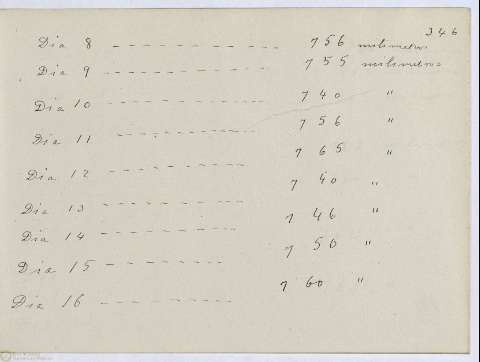 346
Dia 8 - - - - - - - - - - 756 milimetros
Dia 9 - - - - - - - - - - 755 milimetros
Dia 10 - - - - - - - - - - 740 "
Dia 11 - - - - - - - - - - 756 "
Dia 12 - - - - - - - - - - 765 "
Dia 13 - - - - - - - - - - 740 "
Dia 14 - - - - - - - - - - 746 "
Dia 15 - - - - - - - - - - 750 "
Dia 16 - - - - - - - - - - 760 "